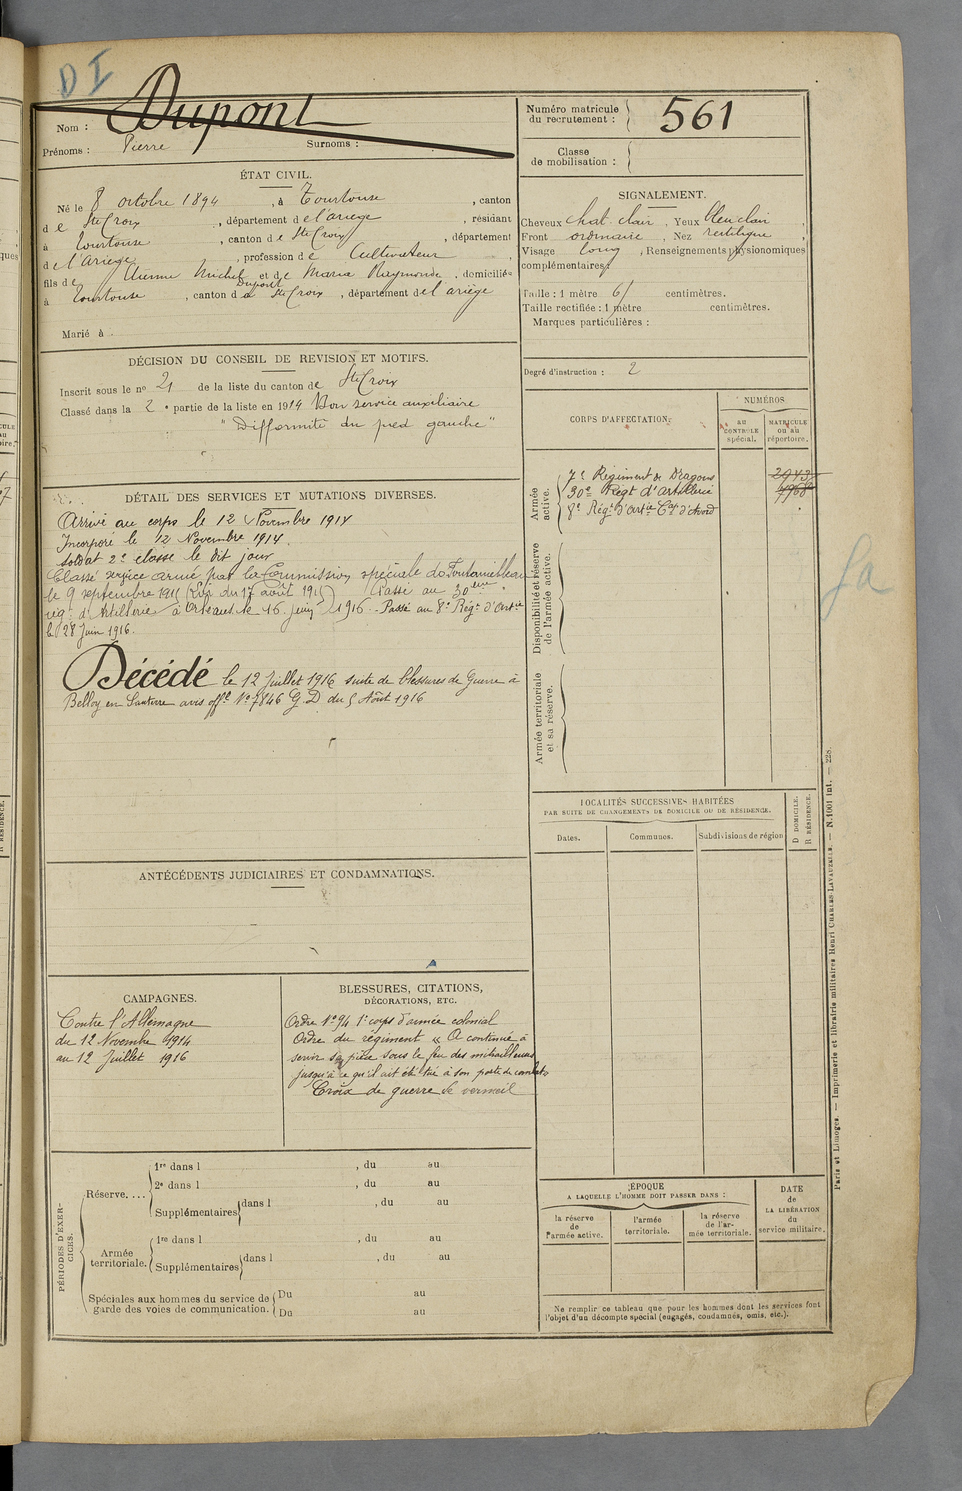 D I
Nom : Dupont
Prénoms : Pierre Surnoms :
Numéro matricule
du recrutement : 561
Classe
de mobilisation :
ÉTAT CIVIL.
Né le 8 octobre 1894, à Tourtouse, canton
de Ste Croix, département de l'ariège, résidant
à Tourtouse, canton de Ste Croix, département
de l'Ariège, profession de Cultivateur,
fils de Michel et de Maria Raymonde, domiciliés
Dupont
à Tourtouse, canton de Ste Croix, département de l'ariège
Marié à
SIGNALEMENT.
Cheveux chat. clair, Yeux bleu clair,
Front ordinaire, Nez rectiligne,
Visage long, Renseignements physionomiques
complémentaires :
Taille : 1 mètre 61 centimètres.
Taille rectifiée : 1 mètre centimètres.
Marques particulières :
Degré d'instruction : 2
DÉCISION DU CONSEIL DE REVISION ET MOTIFS.
Inscrit sous le no 21 de la liste du canton de Ste Croix
Classé dans la 2e partie de la liste en 1914 Bon service auxiliaire
" Difformité du pied gauche "
CORPS D'AFFECTATION.
NUMÉROS
au
CONTRÔLE
spécial.
MATRICULE
ou au
répertoire.
Armée
active.
7e Régiment de Dragons 2943
30e Régt d'artillerie
8e Régt d'Artie Cie d'Avord
Disponibilité et réserve
de l'armée active.
Armée territoriale
et sa réserve.
DÉTAIL DES SERVICES ET MUTATIONS DIVERSES.
Arrivé au corps le 12 Novembre 1914
Incorporé le 12 Novembre 1914.
soldat 2e classe le dit jour
Classé service armé par la Commission spéciale de Fontainebleau
le 9 septembre 1915 (Loi du 17 août 1915) Passé au 30eme
rég. d'Artillerie à Orléans le 16 juin 1916. Passé au 8e Régt d'Artie
le 28 Juin 1916.
Décédé le 12 Juillet 1916 suite de blessures de Guerre à
Belloy en Santerre avis offl No 7846 G.D du 5 Août 1916
LOCALITÉS SUCCESSIVES HABITÉES
PAR SUITE DE CHANGEMENTS DE DOMICILE OU DE RÉSIDENCE.
Dates.
Communes.
Subdivisions de région
D DOMICILE.
R RÉSIDENCE.
ANTÉCÉDENTS JUDICIAIRES ET CONDAMNATIONS.
CAMPAGNES.
Contre l'Allemagne
du 12 Novembre 1914
au 12 Juillet 1916
BLESSURES, CITATIONS,
DÉCORATIONS, ETC.
Ordre No 94 1e corps d'armée colonial
Ordre du régiment « A continué à
servir sa pièce sous le feu des mitrailleuses
jusqu'à ce qu'il ait été tué à son poste de combat »
Croix de guerre de vermeil
PÉRIODES D'EXERCICES.
Réserve....
1re dans l , du au
2e dans l , du au
Supplémentaires dans l , du au
Armée
territoriale.
1re dans l , du au
Supplémentaires dans l , du au
Spéciales aux hommes du service de
garde des voies de communication.
Du au
Du au
ÉPOQUE
A LAQUELLE L'HOMME DOIT PASSER DANS :
la réserve
de
l'armée active.
l'armée
territoriale.
la réserve
de l'ar-
mée territoriale.
DATE
de
LA LIBÉRATION
du
service militaire.
Ne remplir ce tableau que pour les hommes dont les services font
l'objet d'un décompte spécial (engagés, condamnés, omis, etc.).
Paris et Limoges. — Imprimerie et librairie militaires Henri CHARLES-LAVAUZELLE. — N. 1001 int. — 228.